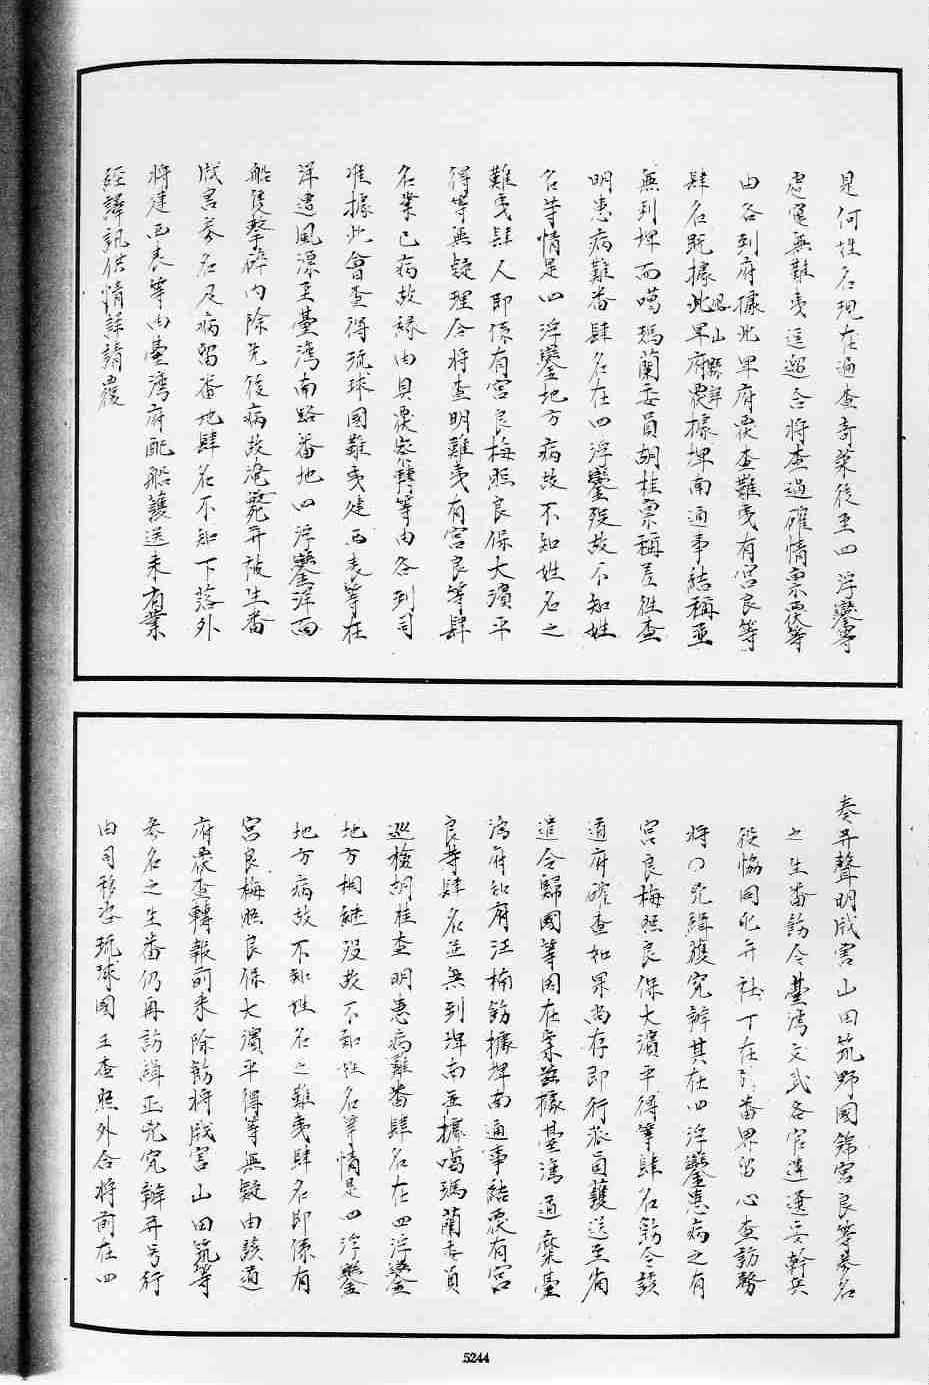 是何姓名現在遍查奇萊後至四浮鑾等
處寔無難夷逗遛合將查過確情稟覆等
由各到府據此卑府覆查難夷有宮良等
肆名既據卑府覆據埤南通事結稱並
無到埤而噶瑪蘭委員胡桂稟稱差往查
明患病難番肆名在四浮鑾歿故不知姓
名等情是四浮鑾地方病故不知姓名之
難夷肆人即係有宮良梅照良保大濱平
得等無疑理合將查明難夷有宮良等肆
名業已病故緣由具覆察轉等由各到司
准據此會查得琉球國難夷建西表等在
洋遭風漂至臺灣南路番地四浮鑾洋面
船隻擊碎內除先後病故淹斃并被生番
戕害叁名及病留番地肆名不知下落外
將建西表等由臺灣府配船護送來有業
經譯訊供情詳請覆
奏并聲明戕害山田筑野國錦宮良等叁名
之生番飭令臺灣文武各官連選妥幹兵
役協同化平社丁在於番界留心查訪務
將正兇緝獲究辦其在四浮鑾患病之有
宮良梅照良保大濱平得等肆名飭令該
道府確查如果尚存即行派員護送至省
遣令歸國等因在案茲據臺灣道稟臺
灣府知府汪楠飭據埤南通事結覆有宮
良等肆名並無到埤南並據噶瑪蘭委員
巡檢胡桂查明患病難番肆名在四浮鑾
地方相繼歿故不知姓名等情是四浮鑾
地方病故不知姓名之難夷肆名即係有
宮良梅照良保大濱平得等無疑由該道
府覆查轉報前來除飭將戕害山田筑等
叁名之生番仍再訪緝正兇究辦并另行
由司移咨琉球國王查照外合將前在四
5244